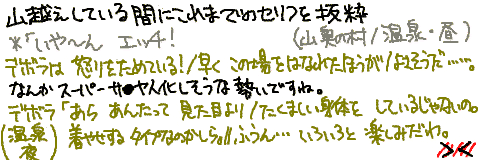 山越えしている間にこれまでのセリフを抜粋
※「いや〜ん エッチ! (山奥の村/温泉・昼)
デボラは 怒りをためている!/早く この場をはなれたほうが/よさそうだ……。
なんかスーパーサ●ヤ人化しそうな勢いですね。
デボラ「あら あんたって 見た目より/たくましい身体を しているじゃないの。
(温泉 夜) 着やせする タイプなのかしら。//ふうん… いろいろと 楽しみだわ。
><